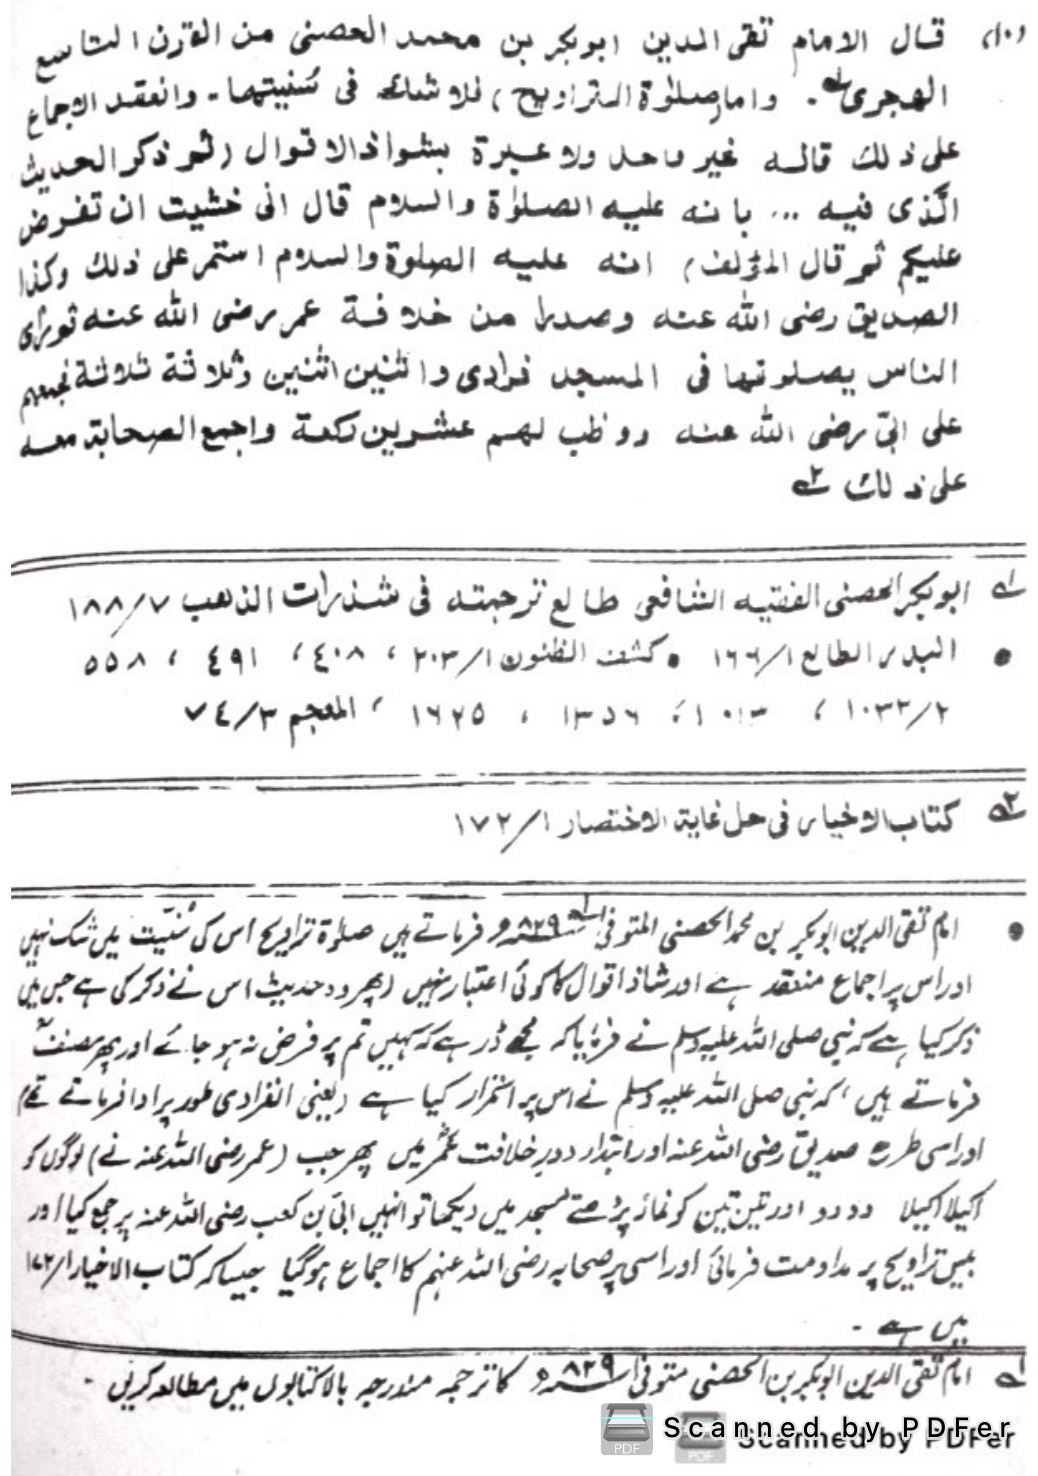 (١٠) قال الامام تقی الدین ابوبکر بن محمد الحصنی من القرن التاسع
الھجری لہ . واما (صلوٰۃ التراویح) فلا شك فی سُنیتھا۔ وانعقد الاجماع
علی ذلك قالہ غیر واحد ولا عبرة بشواذ الاقوال (ثم ذکر الحدیث
الّذی فیہ ... بانہ علیہ الصلوٰۃ والسلام قال انی خشیت ان تفرض
علیکم ثم قال المؤلف) انہ علیہ الصلوۃ والسلام استمر علی ذلك وکذا
الصدیق رضی اللہ عنہ وصدرا من خلافة عمر رضی اللہ عنہ ثم رأی
الناس یصلونھا فی المسجد فرادی واثنین اثنین وثلاثة ثلاثة فجمعھم
علی ابیّ رضی اللہ عنہ ووظب لھم عشرین رکعة واجمع الصحابة معہ
علی ذلك ٢ہ
لہ ابوبکر الحصنی الفقیہ الشافعی طالع ترجمتہ فی شذرات الذھب ٧/١٨٨
● البدر الطالع ١/١٦٦ ● کشف الظنون ١/٢٠٣ ، ٤٠٨ ، ٤٩١ ، ٥٥٨
٢/١٠٣٢ ، ١٠١٣ ، ١٣٥٦ ، ١٦٢٥ ، المعجم ٣/٧٤
٢ہ کتاب الاخیار فی حل غایة الاختصار ١/١٧٢
● امام تقی الدین ابوبکر بن محمد الحصنی المتوفی ٨٢٩ھ لہ فرماتے ہیں صلوٰۃ تراویح اس کی سُنیّت میں شک نہیں
اور اس پر اجماع منعقد ہے اور شاذ اقوال کا کوئی اعتبار نہیں (پھر وہ حدیث اس نے ذکر کی ہے جس میں
ذکر کیا ہے کہ نبی صلی اللہ علیہ وسلم نے فرمایا کہ مجھے ڈر ہے کہ کہیں تم پر فرض نہ ہو جائے اور پھر مصنفؒ
فرماتے ہیں، کہ نبی صلی اللہ علیہ وسلم نے اس پر استمرار کیا ہے (یعنی انفرادی طور پر ادا فرماتے تھے)
اور اسی طرح صدیق رضی اللہ عنہ اور ابتداء دورِ خلافت عمرؓ میں پھر جب (عمر رضی اللہ عنہ نے) لوگوں کو
اکیلا اکیلا دو دو اور تین تین کو نماز پڑھتے مسجد میں دیکھا تو انہیں ابیّ بن کعب رضی اللہ عنہ پر جمع کیا اور
بیس تراویح پر مداومت فرمائی اور اسی پر صحابہ رضی اللہ عنہم کا اجماع ہوگیا جیسا کہ کتاب الاخیار ١/١٧٢
میں ہے ۔
لہ امام تقی الدین ابوبکر بن الحصنی متوفی ٨٢٩ھ کا ترجمہ مندرجہ بالا کتابوں میں مطالعہ کریں ۔
Scanned by PDFer
Scanned by PDFer